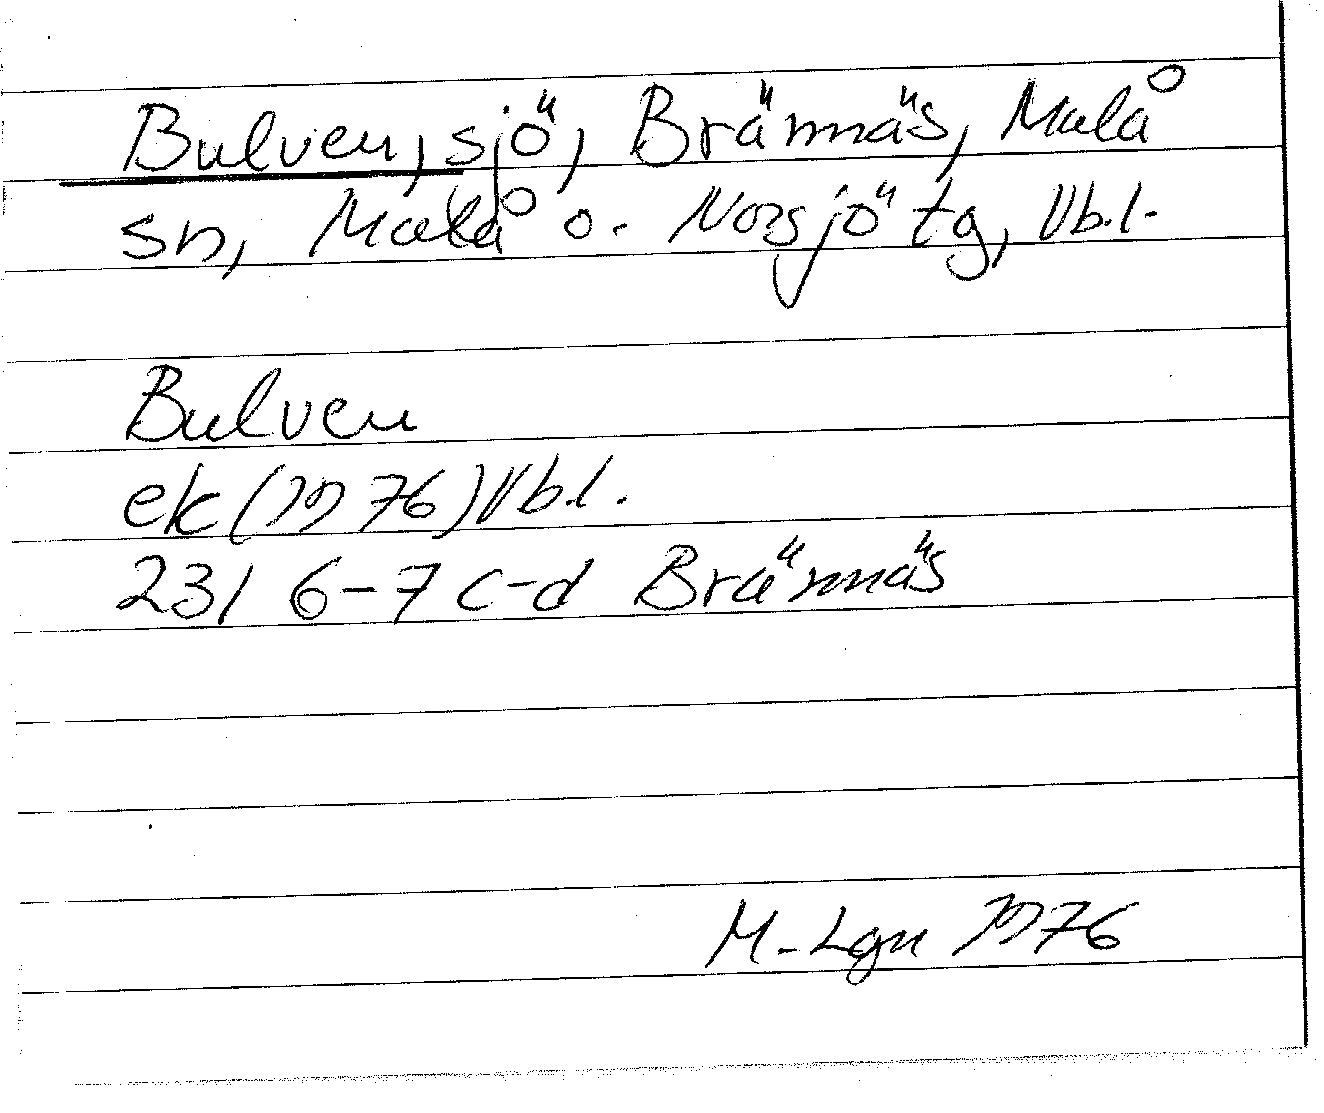 Bulven, sjö, Brännäs, Malå
sn, Malå o. Norsjö tg, Vb.l.
Bulven
ek (1976) Vb.l.
23I 6-7 c-d Brännäs
M-Lgn 1976